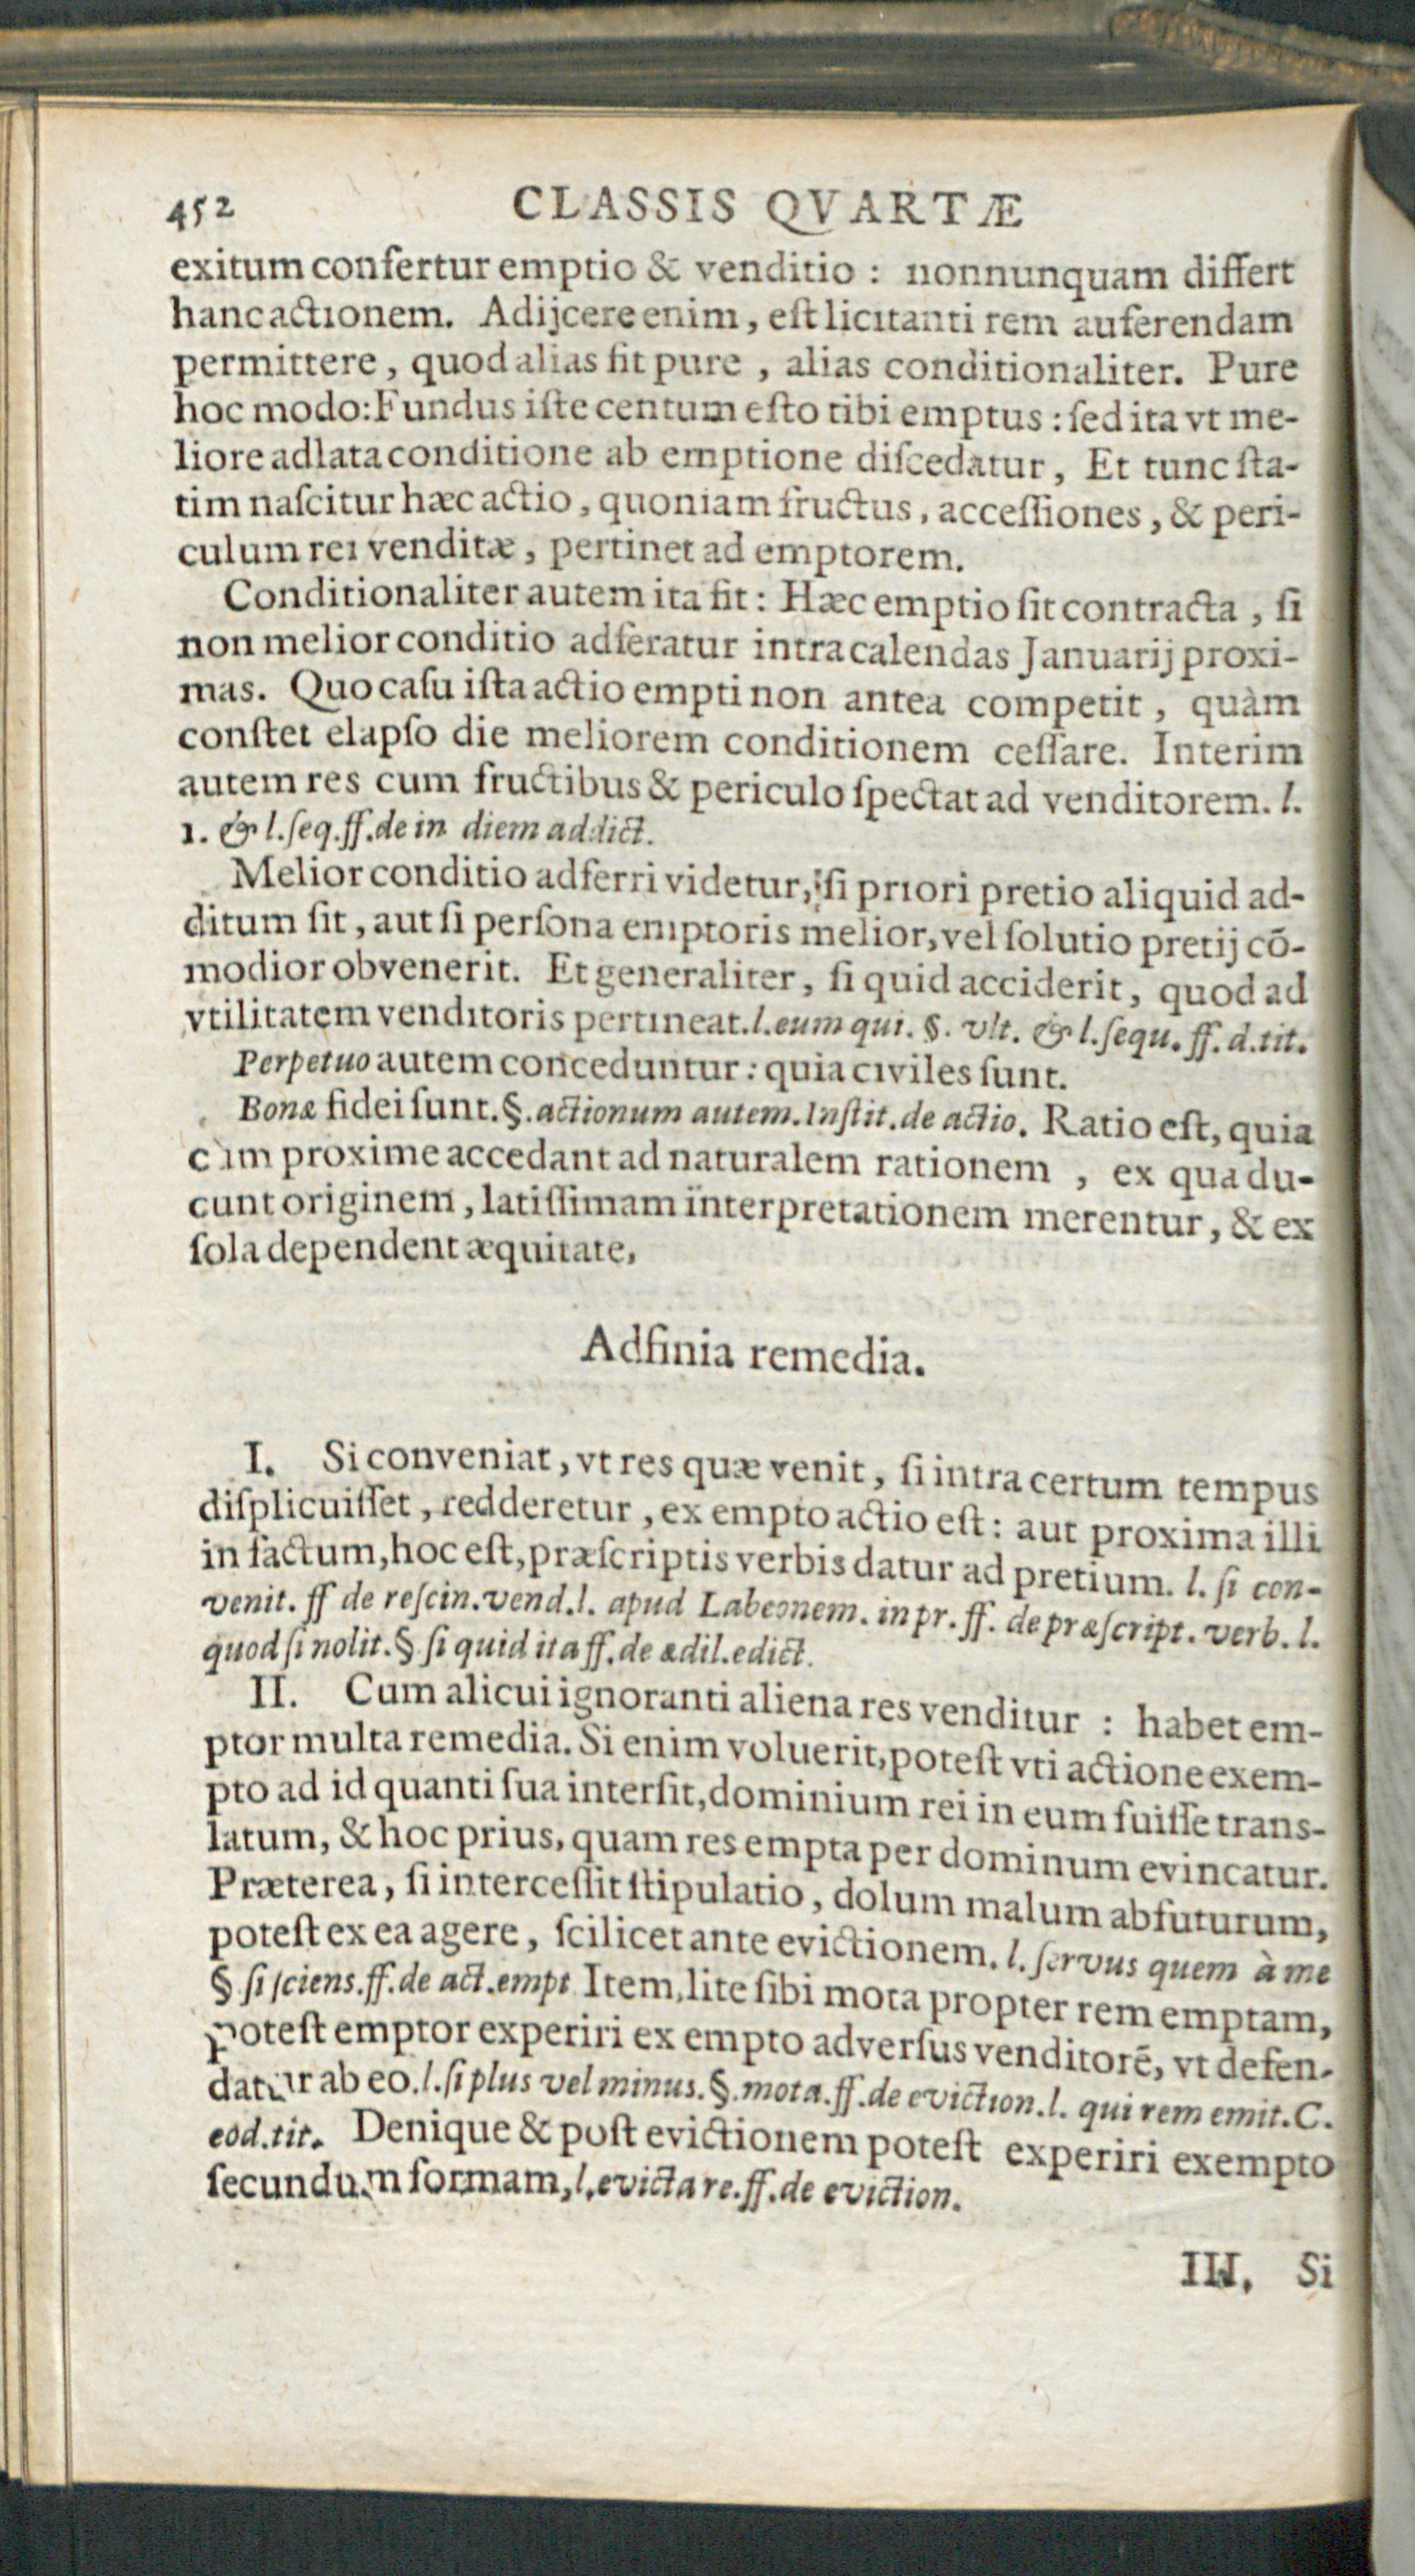 452 CLASSIS QVARTÆ
exitum confertur emptio & venditio : nonnunquam differt
hanc actionem. Adijcere enim, eſt licitanti rem auferendam
permittere, quod alias fit pure, alias conditionaliter. Pure
hoc modo: Fundus iſte centum eſto tibi emptus : ſed ita vt me-
liore adlata conditione ab emptione diſcedatur, Et tunc ſta-
tim naſcitur hæc actio, quoniam fructus, acceſſiones, & peri-
culum rei venditæ, pertinet ad emptorem.
Conditionaliter autem ita fit : Hæc emptio ſit contracta, ſi
non melior conditio adferatur intra calendas Januarij proxi-
mas. Quo caſu iſta actio empti non antea competit, quàm
conſtet elapſo die meliorem conditionem ceſſare. Interim
autem res cum fructibus & periculo ſpectat ad venditorem. l.
1. & l. ſeq. ff. de in diem addict.
Melior conditio adferri videtur, ſi priori pretio aliquid ad-
ditum ſit, aut ſi perſona emptoris melior, vel ſolutio pretij cō-
modior obvenerit. Et generaliter, ſi quid acciderit, quod ad
vtilitatem venditoris pertineat. l. eum qui. §. vlt. & l. ſequ. ff. d. tit.
Perpetuo autem conceduntur : quia civiles ſunt.
Bonæ fidei ſunt. §. actionum autem. Inſtit. de actio. Ratio eſt, quia
cùm proxime accedant ad naturalem rationem, ex qua du-
cunt originem, latiſſimam interpretationem merentur, & ex
ſola dependent æquitate,
Adfinia remedia.
I. Si conveniat, vt res quæ venit, ſi intra certum tempus
diſplicuiſſet, redderetur, ex empto actio eſt : aut proxima illi
in factum, hoc eſt, præſcriptis verbis datur ad pretium. l. ſi con-
venit. ff de reſcin. vend. l. apud Labeonem. in pr. ff. de præſcript. verb. l.
quod ſi nolit. § ſi quid ita ff. de ædil. edict.
II. Cum alicui ignoranti aliena res venditur : habet em-
ptor multa remedia. Si enim voluerit, poteſt vti actione exem-
pto ad id quanti ſua interſit, dominium rei in eum fuiſſe trans-
latum, & hoc prius, quam res empta per dominum evincatur.
Præterea, ſi interceſſit ſtipulatio, dolum malum abfuturum,
poteſt ex ea agere, ſcilicet ante evictionem. l. ſervus quem à me
§ ſi ſciens. ff. de act. empt Item, lite ſibi mota propter rem emptam,
poteſt emptor experiri ex empto adverſus venditorē, vt defen-
datur ab eo. l. ſi plus vel minus. §. mota. ff. de eviction. l. qui rem emit. C.
eod. tit. Denique & poſt evictionem poteſt experiri exempto
ſecundum formam, l. evicta re. ff. de eviction.
III. Si